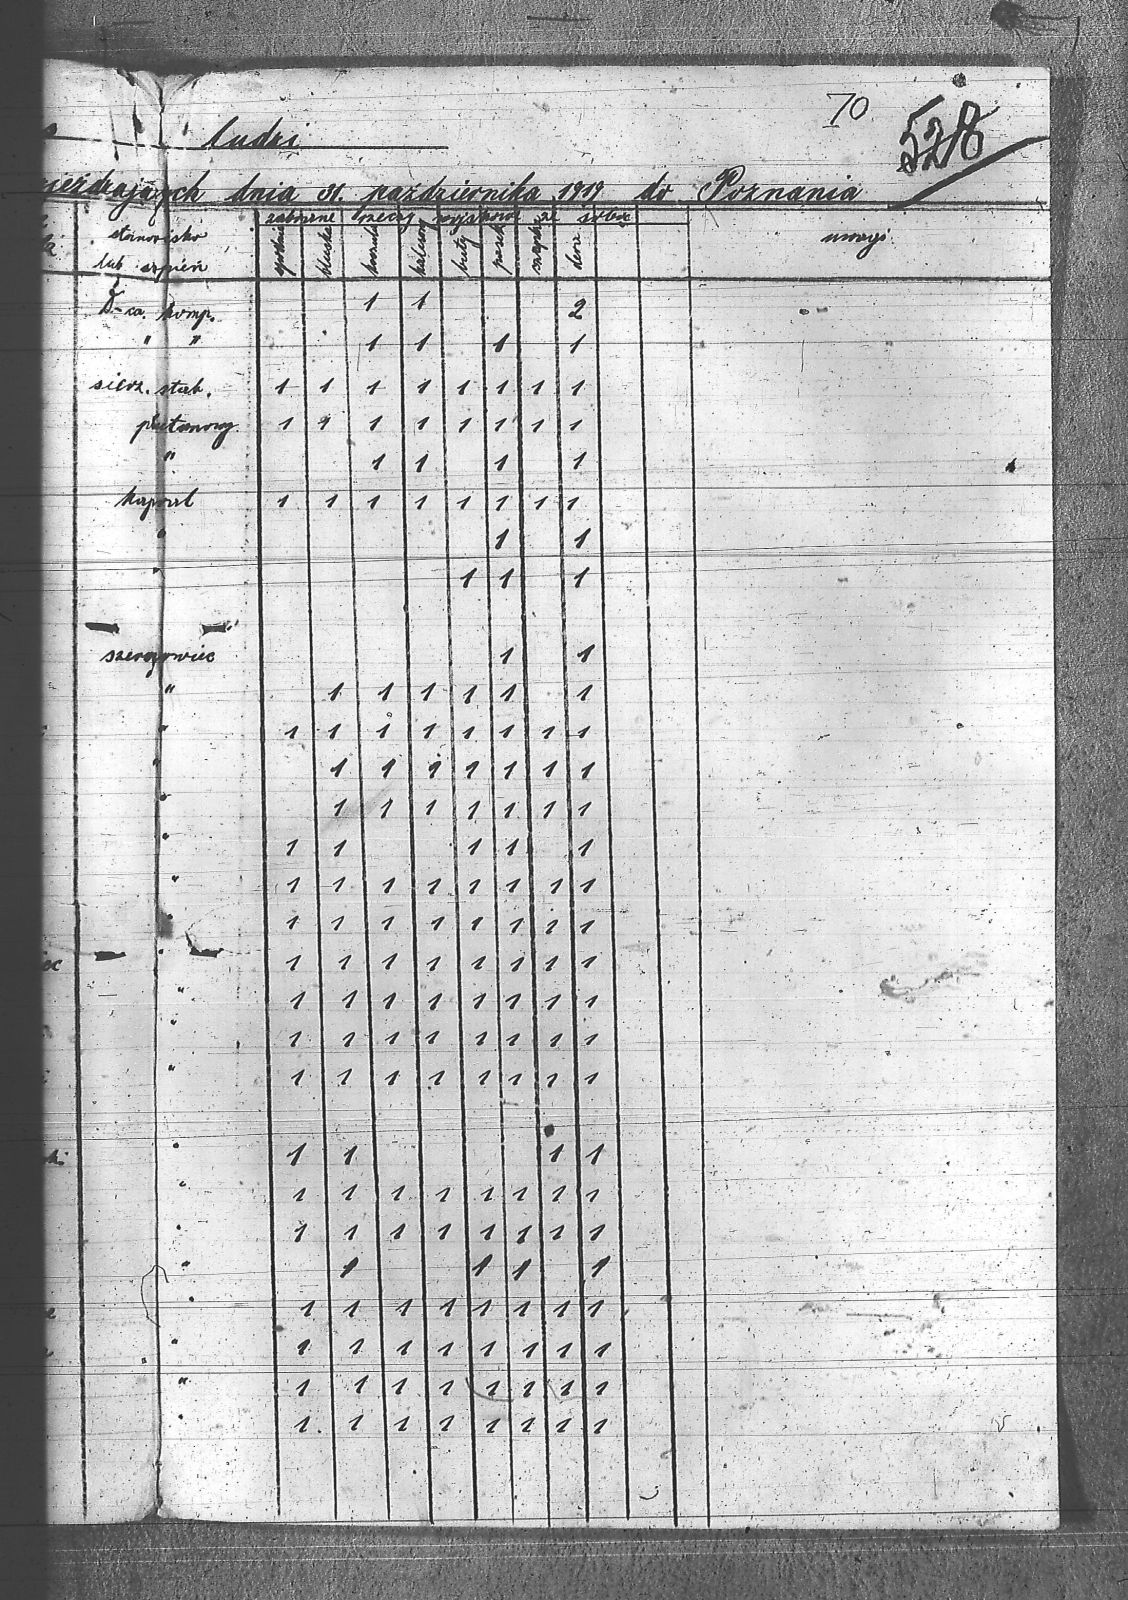 70
528
ludzi
dnia 31. października 1919 do Poznania
zabrane rzeczy wojskowe ze sobą
stanowisko lub stopień spodnie bluska koszula kalesony buty pasek czapka uwagi
D-ca. komp. 1 1 2
" " 1 1 1 1
sierż. szt. 1 1 1 1 1 1 1 1
plutonowy 1 1 1 1 1 1 1 1
" 1 1 1 1
kapral 1 1 1 1 1 1 1 1
" 1 1
" 1 1 1
szeregowiec 1 1
" 1 1 1 1 1 1
" 1 1 1 1 1 1 1 1
" 1 1 1 1 1 1 1
" 1 1 1 1 1 1 1
" 1 1 1 1 1
" 1 1 1 1 1 1 1 1
" 1 1 1 1 1 1 1 1
" 1 1 1 1 1 1 1 1
" 1 1 1 1 1 1 1 1
" 1 1 1 1 1 1 1 1
" 1 1 1 1 1 1 1 1
" 1 1 1 1
" 1 1 1 1 1 1 1 1
" 1 1 1 1 1 1 1 1
" 1 1 1 1
" 1 1 1 1 1 1 1 1
" 1 1 1 1 1 1 1 1
" 1 1 1 1 1 1 1 1
" 1 1 1 1 1 1 1 1